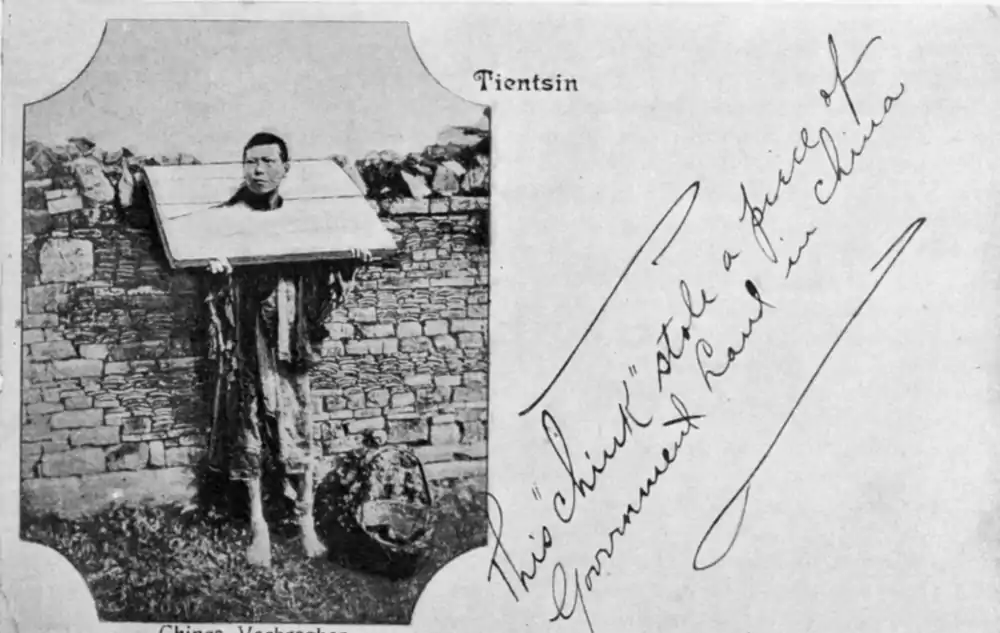 Tientsin
This "Chink" stole a piece of
Government Land in China